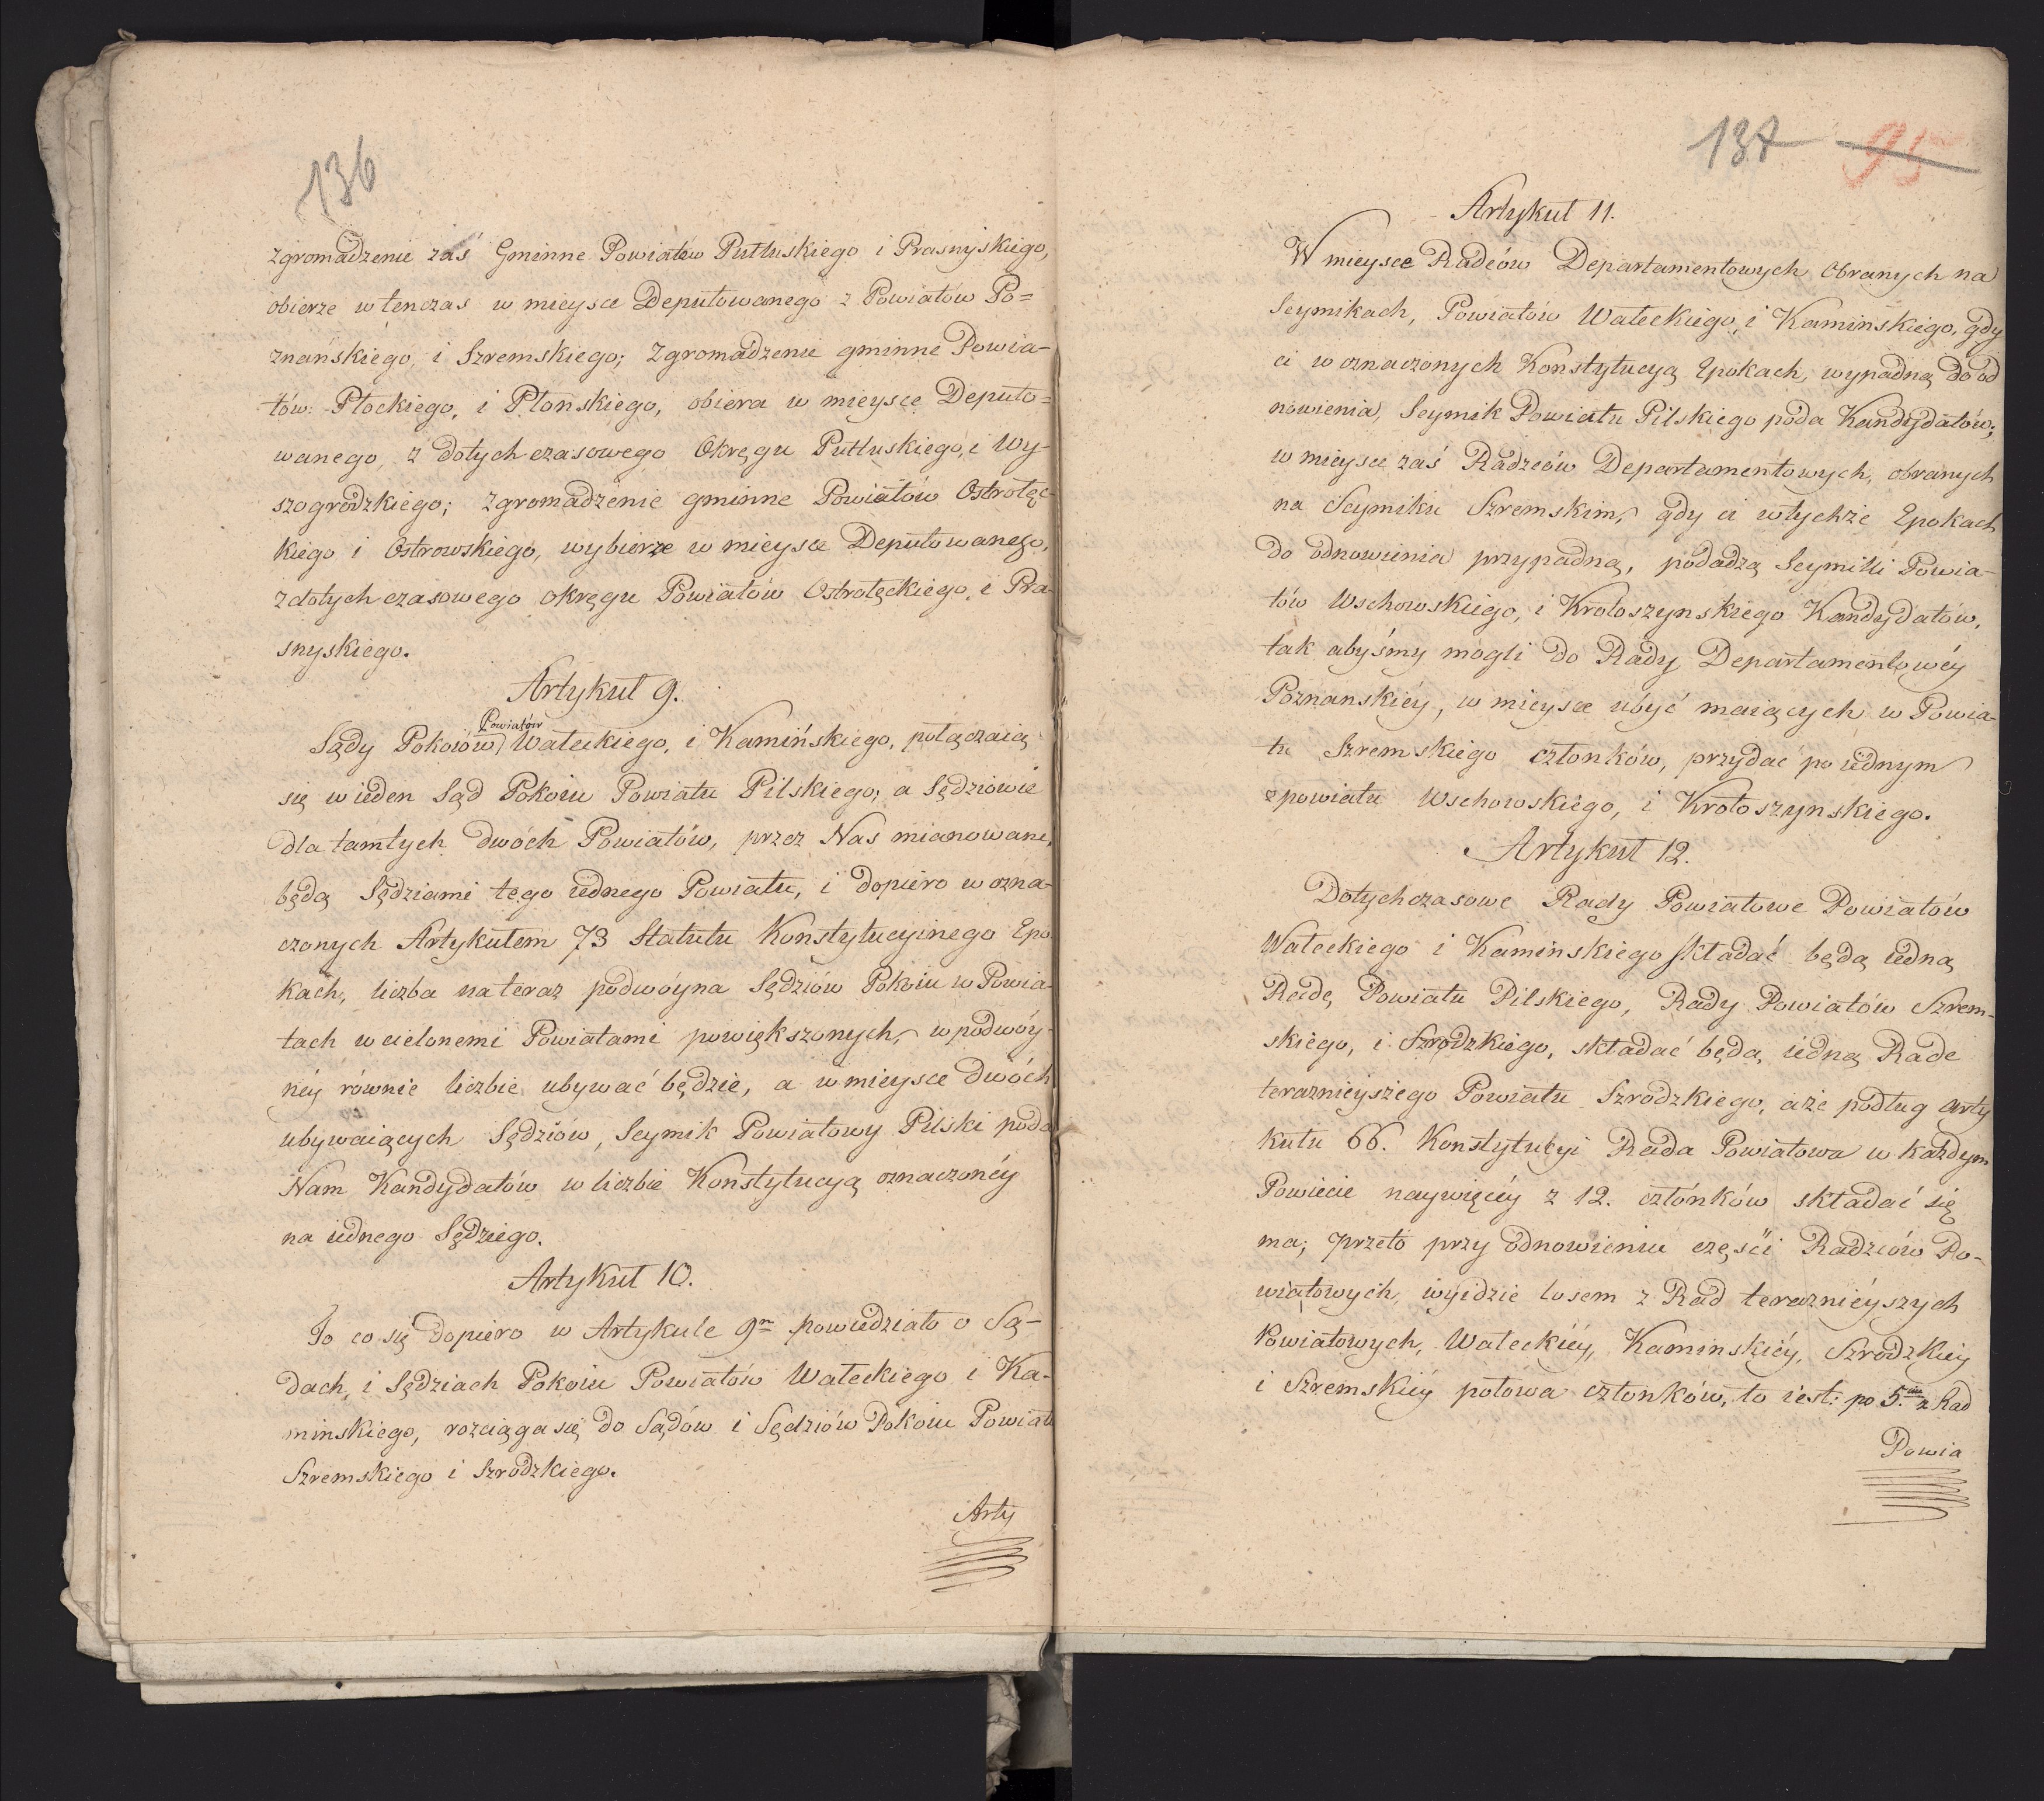 136
zgromadzenie zaś Gminne Powiatów Pułtuskiego i Prasnyskiego,
obierze wtenczas w mieysce Deputowanego z Powiatów Po=
znańskiego, i Szremskiego; Zgromadzenie gminne Powia-
tów: Płockiego, i Płonskiego, obiera w mieysce Deputo=
wanego, z dotychczasowego Okręgu Pułtuskiego, i Wy-
szogrodzkiego; zgromadzenie gminne Powiatów Ostrołęc-
kiego i Ostrowskiego, wybierze w mieysce Deputowanego,
z dotychczasowego okręgu Powiatów Ostrołęckiego, i Pra-
snyskiego.
Artykuł 9.
Powiatów
Sądy Pokoiów Wałeckiego, i Kamińskiego, połączaią
się w ieden Sąd Pokoiu Powiatu Pilskiego; a Sędziowie
dla tamtych dwóch Powiatów, przez Nas mianowane,
będą Sędziami tego iednego Powiatu, i dopiero w ozna-
czonych Artykułem 73 Statutu Konstytucyinego Epo
kach, liczba na teraz podwóyna Sędziów Pokoiu w Powia-
tach wcielonemi Powiatami powiększonych, w podwóy-
néy równie liczbie ubywać będzie, a w mieysce dwóch
ubywaiących Sędziów, Seymik Powiatowy Pilski poda
Nam Kandydatów w liczbie Konstytucyą oznaczonéy
na iednego Sędziego.
Artykuł 10.
To co się dopiero w Artykule 9m powiedziało o Są-
dach, i Sędziach Pokoiu Powiatów Wałeckiego i Ka-
minskiego, rozciąga się do Sądów i Sędziów Pokoiu Powiatu
Szremskiego i Szrodzkiego.
Arty
137 95
Artykuł 11.
W mieysce Radców Departamentowych Obranych na
Seymikach, Powiatów Wałeckiego, i Kaminskiego, gdy
ci w oznaczonych Konstytucyą Epokach, wypadną do od
nowienia, Seymik Powiatu Pilskiego poda Kandydatów;
w mieysce zaś Radzców Departamentowych, obranych
na Seymiku Szremskim, gdy ci w tychże Epokach
do odnowienia przypadną, podadzą Seymiki Powia-
tów Wschowskiego, i Krotoszynskiego Kandydatów,
tak abyśmy mogli do Rady Departamentowéy
Poznanskiéy, w mieysce ubyć maiących w Powia-
tu Szremskiego członków, przydać po iednym
z powiatu Wschowskiego, i Krotoszynskiego.
Artykuł 12.
Dotychczasowe Rady Powiatowe Powiatów
Wałeckiego i Kaminskiego składać będą iedną
Radę Powiatu Pilskiego, Rady Powiatów Szrem-
skiego, i Szrodzkiego, składać będą, iedną Rade
teraznieyszego Powiatu Szrodzkiego, a że podług arty
kułu 66. Konstytucyi Rada Powiatowa w każdym
Powiecie naywięcéy z 12. członków składać się
ma; przeto przy odnowieniu części Radzców Po-
wiatowych, wyidzie losem z Rad teraznieyszych
Powiatowych, Wałeckiéy, Kaminskiéy, Szrodzkiéy
i Szremskiéy połowa członków, to iest: po 5.ciu z Rad
Powia